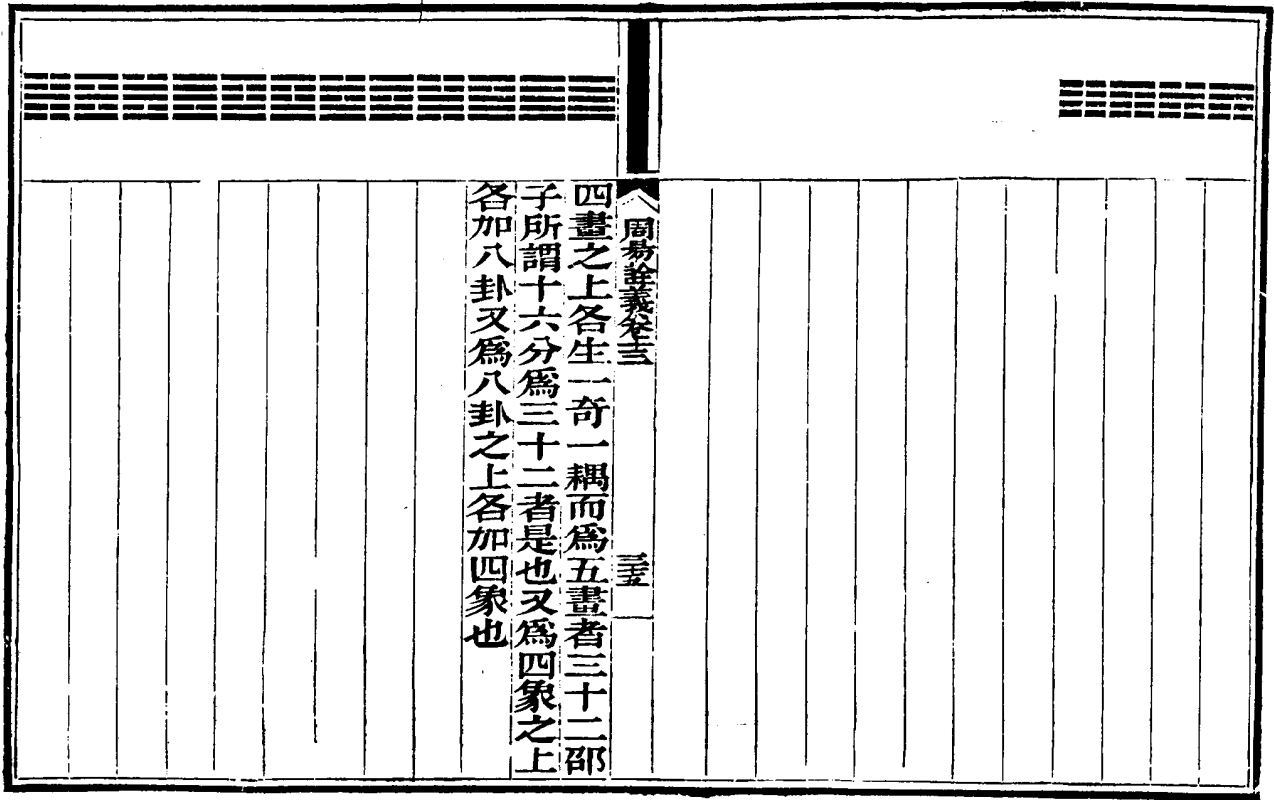 周易詮義卷十三
三十五
四畫之上各生一奇一耦而爲五畫者三十二邵
子所謂十六分爲三十二者是也又爲四象之上
各加八卦又爲八卦之上各加四象也